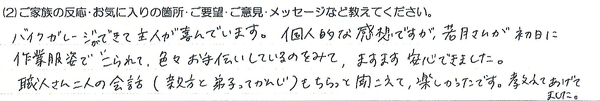 (2)ご家族の反応・お気に入りの箇所・ご要望・ご意見・メッセージなど教えてください。
バイクガレージができて主人が喜んでいます。個人的な感想ですが、若月さんが初日に
作業服姿でこられて、色々お手伝いしているのをみて、ますます安心できました。
職人さん二人の会話(親方と弟子ってかんじ)もちらっと聞こえて、楽しかったです。教えてあげて
ました。